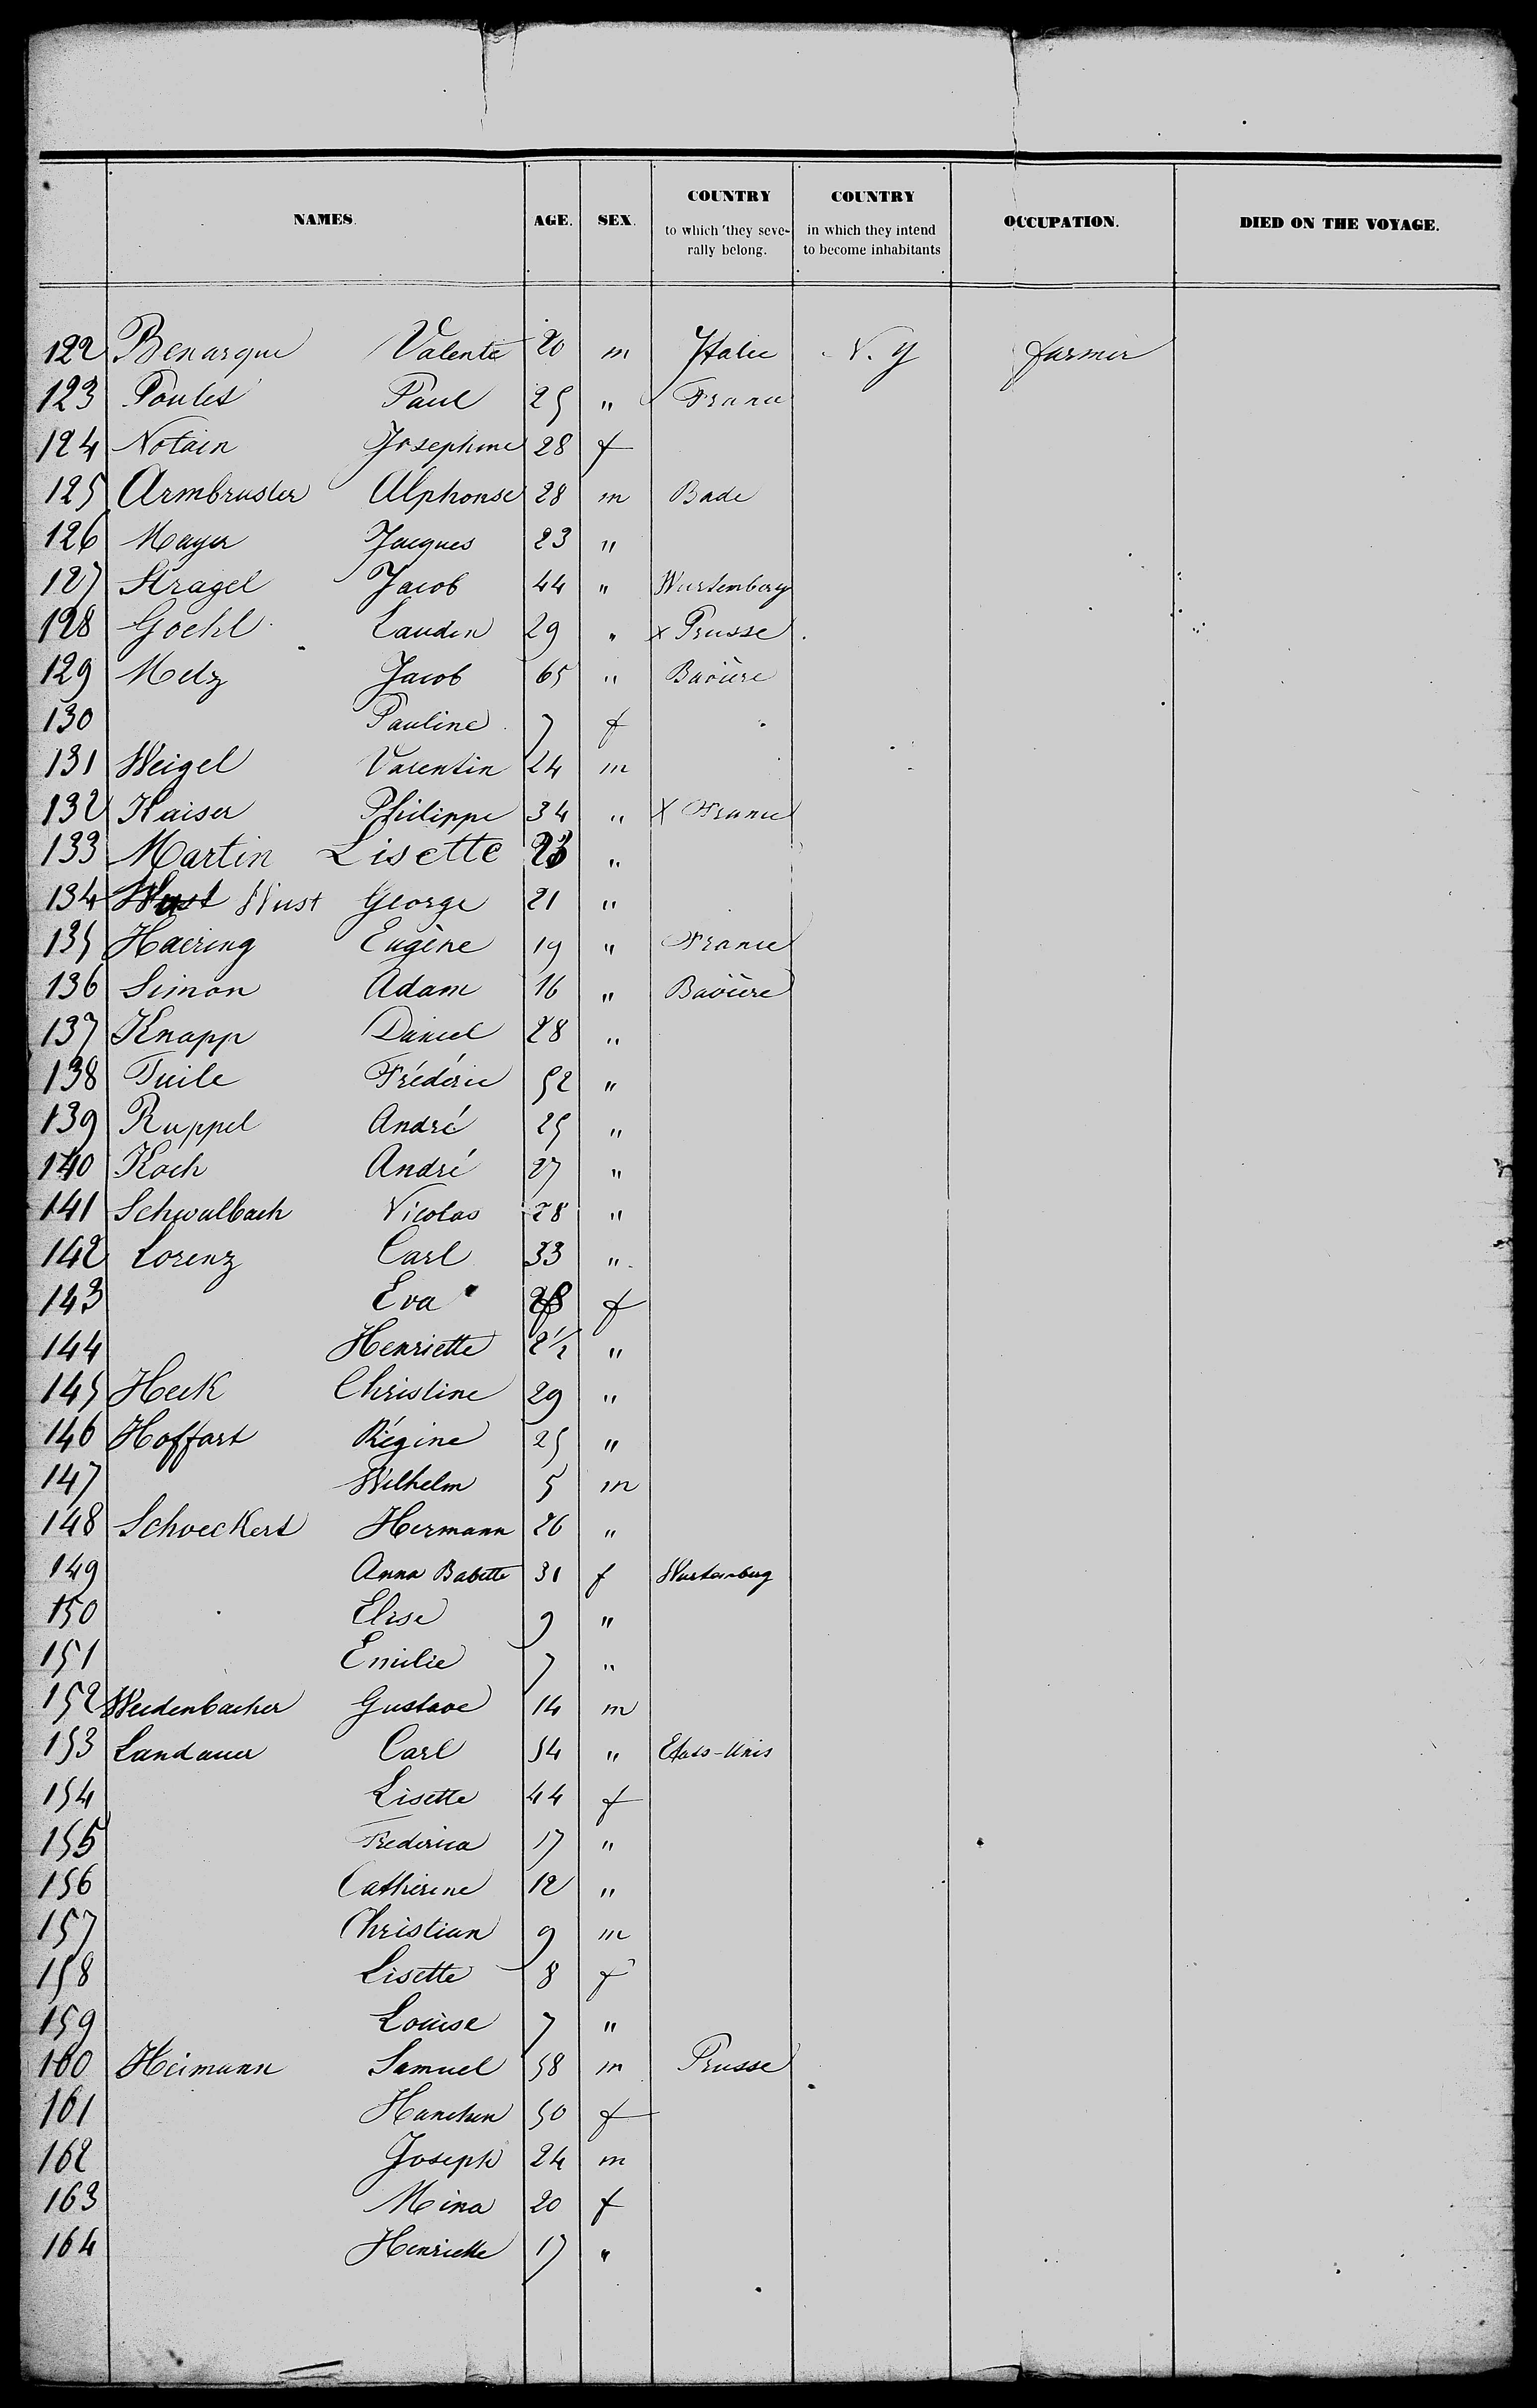 NAMES. AGE. SEX. COUNTRY to which they severally belong. COUNTRY in which they intend to become inhabitants OCCUPATION. DIED ON THE VOYAGE.
122 Benarque Valente 20 m Italie N. Y farmer
123 Poulet Paul 25 " France
124 Notain Josephine 28 f
125 Armbruster Alphonse 28 m Bade
126 Mayer Jacques 23 "
127 Stragel Jacob 44 " Wurtemberg
128 Goehl 29 " x Prusse
129 Metz Jacob 65 " Bavière
130 Pauline 7 f
131 Weigel Valentin 24 m
132 Kaiser Philippe 34 " X France
133 Martin Lisette 23 "
134 Wust Wust George 21 "
135 Haering Eugène 19 " France
136 Simon Adam 16 " Bavière
137 Knapp Daniel 28 "
138 Tuile Fréderic 52 "
139 Ruppel André 25 "
140 Koch André 27 "
141 Schwalbach Nicolas 28 "
142 Lorenz Carl 33 "
143 Eva 28 f
144 Henriette 2 1/2 "
145 Heck Christine 29 "
146 Hoffart Régine 25 "
147 Wilhelm 5 m
148 Schoeckert Hermann 26 "
149 Anna Babette 31 f Wurtemberg
150 Elise 9 "
151 Emilie 7 "
152 Weidenbacher Gustave 14 m
153 Landauer Carl 54 " Etats-Unis
154 Lisette 44 f
155 Frederica 17 "
156 Catherine 12 "
157 Christian 9 m
158 Lisette 8 f
159 Louise 7 "
160 Heimann Samuel 58 m Prusse
161 Hanchen 50 f
162 Joseph 24 m
163 Mina 20 f
164 Henriette 17 "